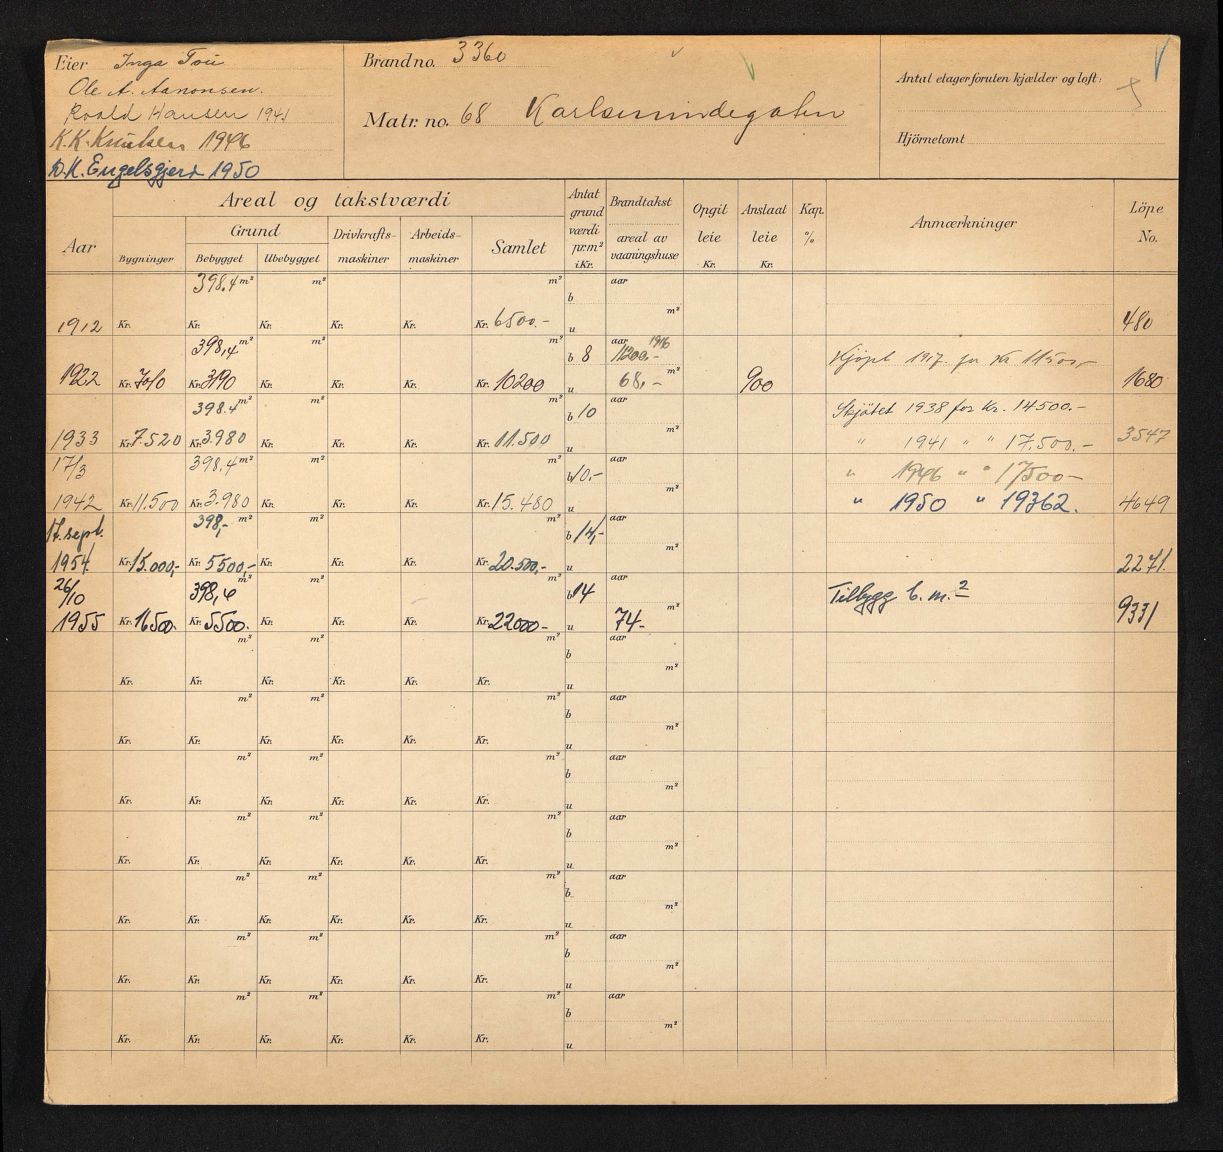 Eier Inga Tou
Ole A. Aanonsen.
Roald Hansen 1941
K.K. Knutsen 1946
D.K. Engelsgjerd 1950
Brand no. 3360
Matr. no. 68 Karlsmindegaten
Antal etager foruten kjælder og loft:
Hjörnetomt
Aar
Areal og takstværdi
Bygninger
Grund
Bebygget
Ubebygget
Drivkrafts-
maskiner
Arbeids-
maskiner
Samlet
Antat
grund
værdi
pr. m²
i Kr.
Brandtakst
areal av
vaaningshuse
Opgit
leie
Kr.
Anslaat
leie
Kr.
Kap.
%
Anmærkninger
Löpe
No.
398.4 m² m² m² b aar
m²
1912 Kr. Kr. Kr. Kr. Kr. Kr. 6500.- u 480
398,4 m² m² m² b 8 aar 1916
11200,- Kjöpt 1917. for Kr 11500,-
1922 Kr. 7010 Kr. 3190 Kr. Kr. Kr. Kr. 10200 u 68,- m² 900 1680
398.4 m² m² m² b 10 aar Skjötet 1938 for Kr. 14500.-
m²
1933 Kr. 7.520 Kr. 3.980 Kr. Kr. Kr. Kr. 11.500 u " 1941 " " 17.500.- 3547
17/3 398.4 m² m² m² b 10.- aar " 1946 " " 17500-
m²
1942 Kr. 11.500 Kr. 3.980 Kr. Kr. Kr. Kr. 15.480 u " 1950 " 19362. 4649
17. sept. 398,- m² m² m² b 14,- aar
m²
1954 Kr. 15.000,- Kr. 5500,- Kr. Kr. Kr. Kr. 20.500,- u 2271.
26/10 398,4 m² m² m² b 14 aar Tilbygg 6. m.²
m²
1955 Kr. 16500. Kr. 5500. Kr. Kr. Kr. Kr. 22000- u 74- 9331
m² m² m² b aar
m²
Kr. Kr. Kr. Kr. Kr. Kr. u
m² m² m² b aar
m²
Kr. Kr. Kr. Kr. Kr. Kr. u
m² m² m² b aar
m²
Kr. Kr. Kr. Kr. Kr. Kr. u
m² m² m² b aar
m²
Kr. Kr. Kr. Kr. Kr. Kr. u
m² m² m² b aar
m²
Kr. Kr. Kr. Kr. Kr. Kr. u
m² m² m² b aar
m²
Kr. Kr. Kr. Kr. Kr. Kr. u
m² m² m² b aar
m²
Kr. Kr. Kr. Kr. Kr. Kr. u